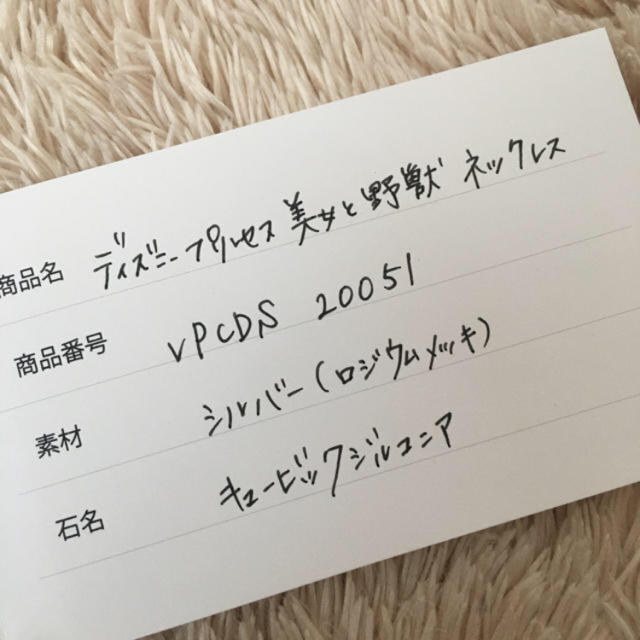 商品名 ディズニープリンセス 美女と野獣 ネックレス
商品番号 VPCDS 20051
素材 シルバー(ロジウムメッキ)
石名 キュービックジルコニア